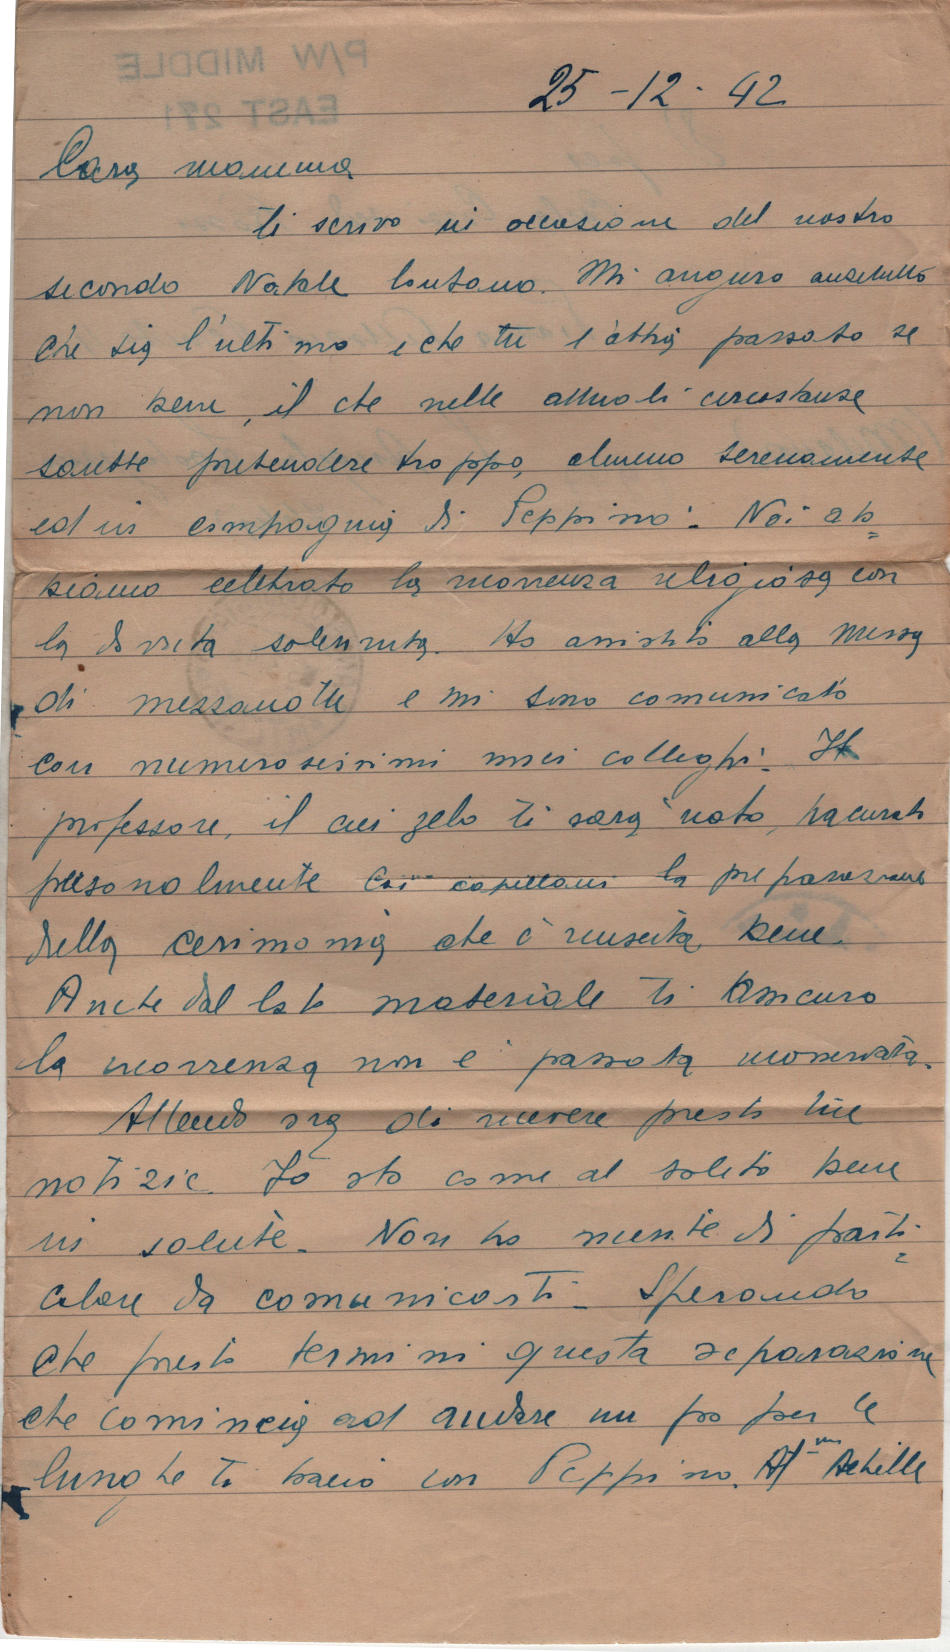 P/W MIDDLE
EAST 271
25-12-42
Cara mamma
ti scrivo in occasione del nostro
secondo Natale lontano. Mi auguro anzitutto
che sia l'ultimo e che tu l'abbia passato se
non bene, il che nelle attuali circostanze
sarebbe pretendere troppo, almeno serenamente
ed in compagnia di Peppino. Noi ab=
biamo celebrato la ricorrenza religiosa con
la dovuta solennità. Ho assistito alla Messa
di mezzanotte e mi sono comunicato
con numerosissimi miei colleghi. Il
professore, il cui zelo ti sarà noto, ha curato
personalmente coi cappellani la preparazione
della cerimonia che è riuscita bene.
Anche dal lato materiale ti assicuro
la ricorrenza non è passata inosservata.
Attendo ora di ricevere presto tue
notizie. Io sto come al solito bene
in salute. Non ho niente di parti=
colare da comunicarti. Sperando
che presto termini questa separazione
che comincia ad andare un po per le
lunghe ti bacio con Peppino. Aff.mo Achille